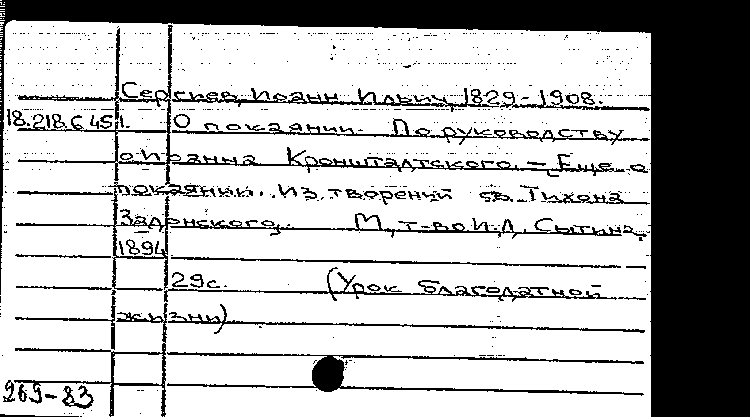 Сергиев, Иоанн Ильич, 1829-1908.
18.218.6.451. О покаянии. По руководству
о. Иоанна Кронштадтского. – Еще о
покаянии. Из творений св. Тихона
Задонского. М, т-во И.Д. Сытина,
1894
29с. (Урок благодатной
жизни)
269-83